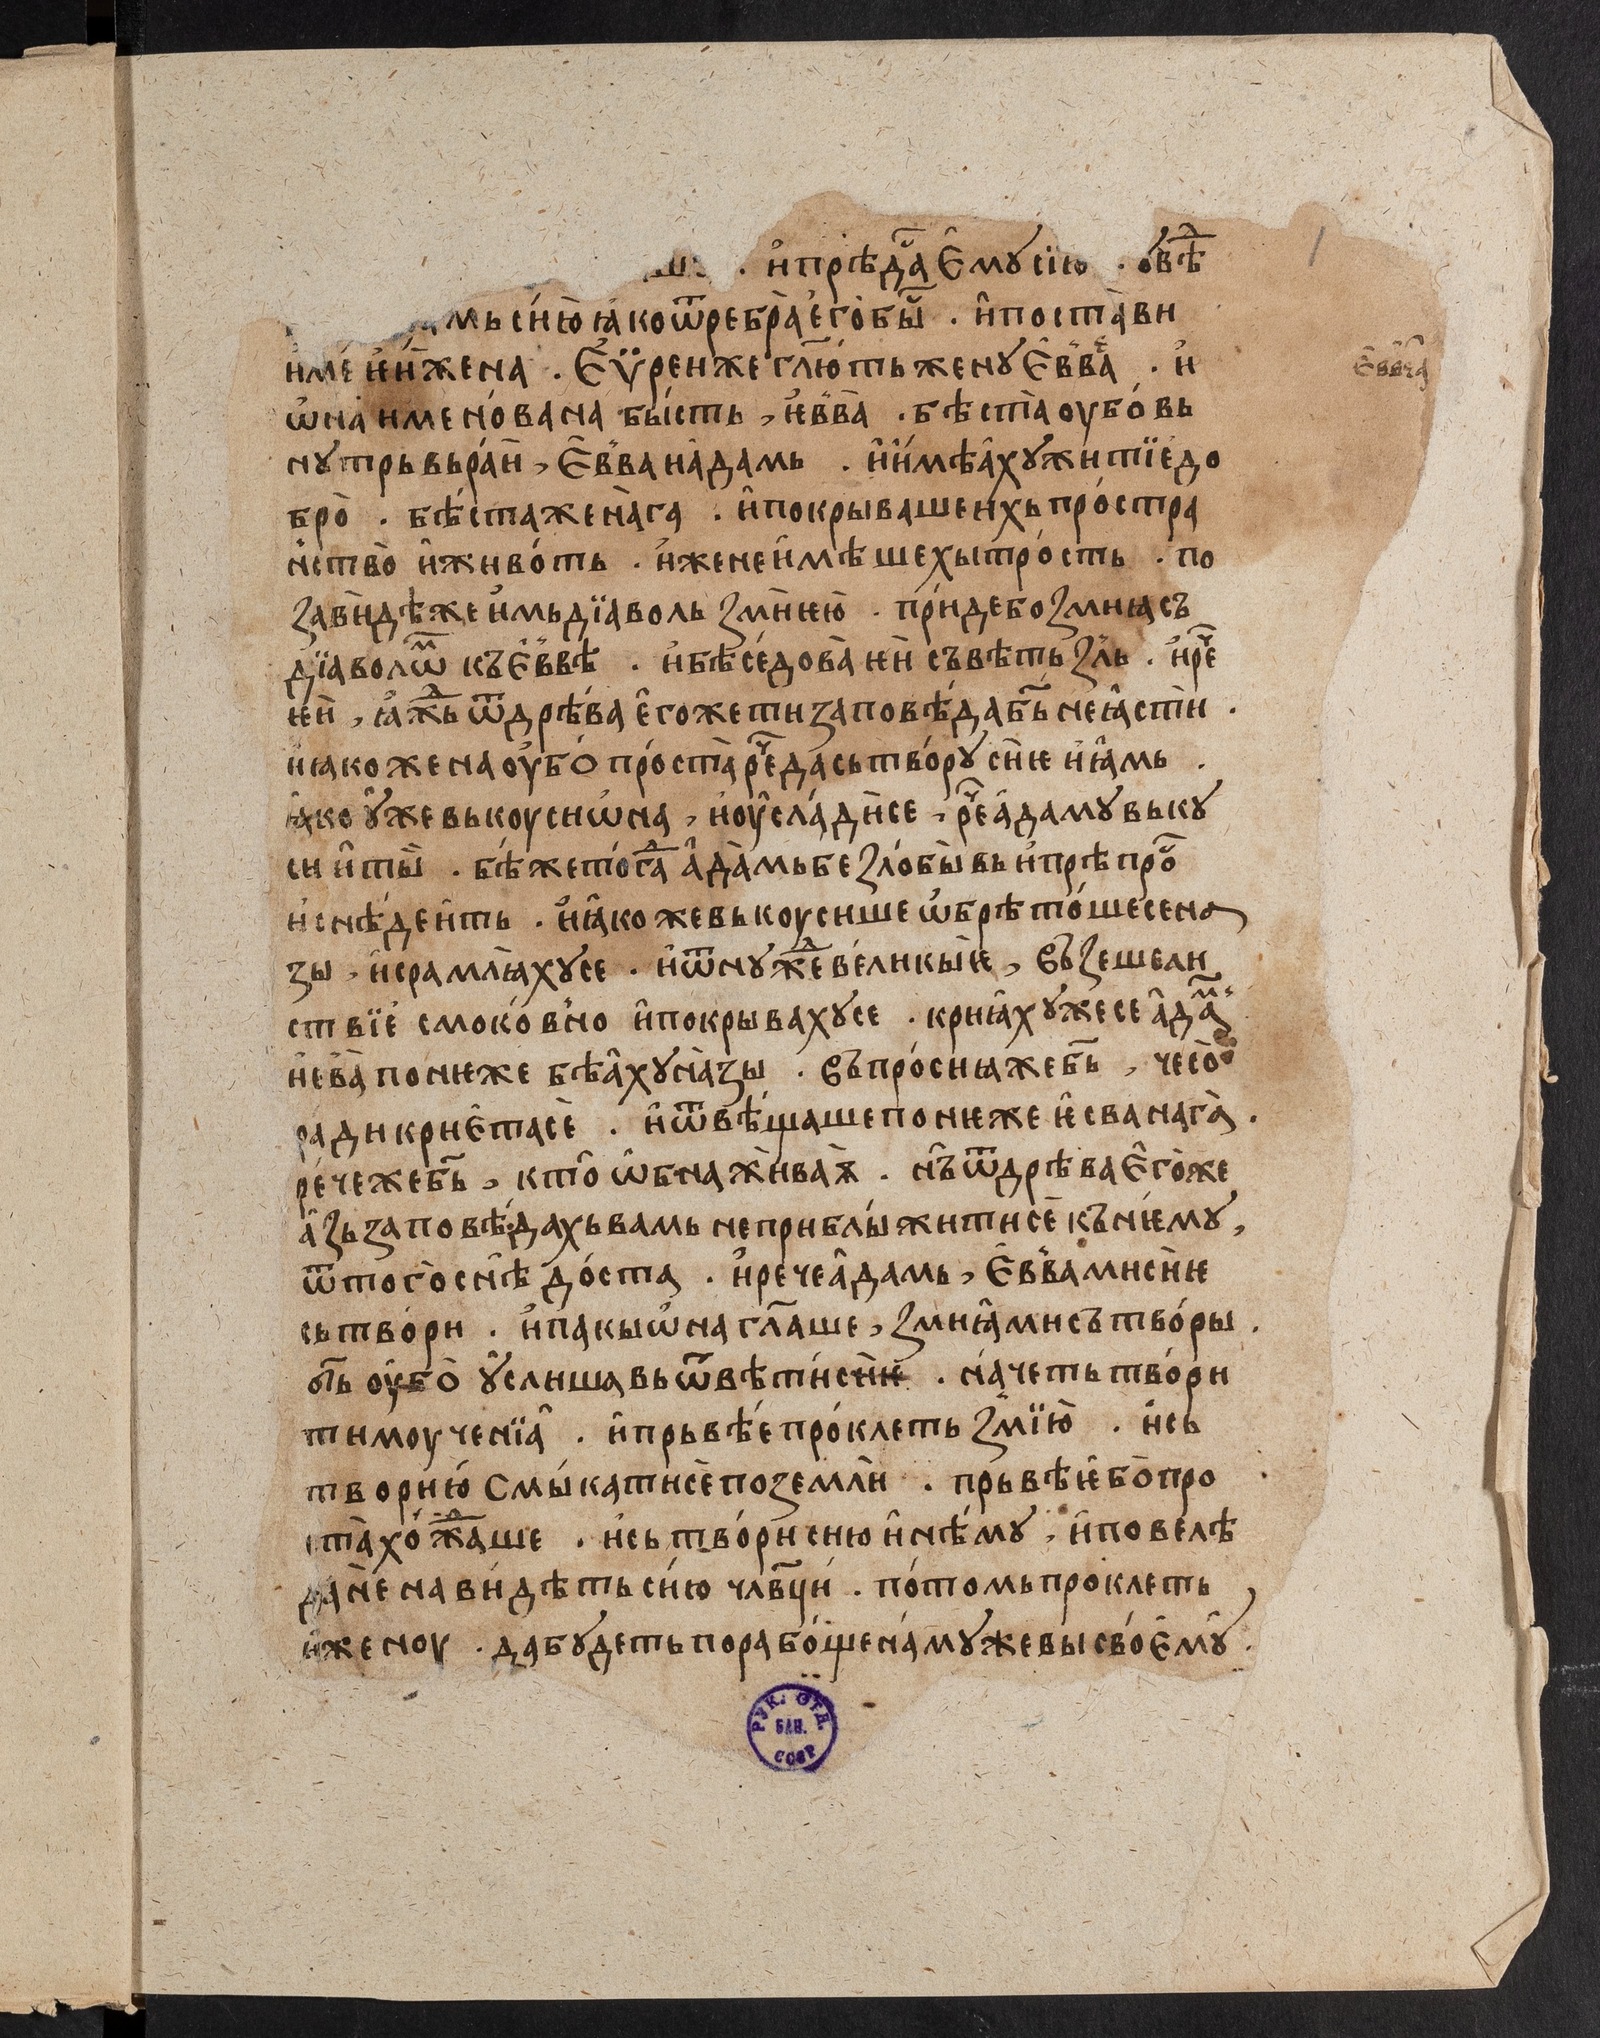 . и҆прѣда҆ч Е҆мꙋ сїю . ꙋ҆вѣ
мь си́ю ꙗ҆ко ѿ ребра̀ є҆го̀ бы̑ . и҆ поста̀ви
и҆́ме є҆и̑ жена . Е҆ѵ̈реи же гл҃ють женꙋ Е҆́в̾ва . и҆
ѡ҆на имено́вана бы́сть , и҆ е҆в̾ва̀ . бѣста̀ оубо вь
нꙋтрь вь ра́и , Е҆́в̾ва и҆ а҆дамь . и҆ и҆мѣа҆хꙋ житїе́ до
бро̀ . бѣ́ста же на̀га . и҆ покрываше ихь про́стра
н́ство̀ и҆ живо́ть . и҆ жене и҆мѣше хытро́сть . по
завидѣ же и҆мь дїаволь змїею . прїиде бо змиꙗ съ
дїаволѡ᷇ къ Е҆́в̾вѣ . и҆ бѣ́седова еи съвѣть зль . и҆ ре҆ч
еи , ꙗ҆ж҇дь ѿ дрѣ́ва е҆гоже ти заповѣ́да бь҃ не ꙗ҆сти .
и ꙗко жена оу҆бо про́ста ре҆ч да сьтво́рꙋ сїе и҆ ꙗ҆мь .
ꙗ҆ко у҆же вькоуси ѡ҆на , и҆ оу҆сла́дисе , ре҆ч а҆дамꙋ вькꙋ
си и҆ ты̀ . бѣ́ же тог҇да а҆да̀мь безло́бывь и҆ прѣпро҇
и҆ снѣ́де и҆ть . и҆ ꙗ҆коже вькоусише ѡ҆брѣто́ше се на
зы , и҆ срамлꙗ́хꙋсе . и҆ ѿ нꙋж҇де вели́кые , възеше ли
ствїе́ смоко́в̾но и҆ покрывахꙋсе . криꙗ҆хꙋ же се а҆да᷇
и҆ е҆ва̀ понеже бѣа҆хꙋ на̀зы . въпро́си ꙗ же бь҃ , чесо̀
ради криЕ҆та сѐ . и҆ ѿвѣ́щаше понеже и҆ е҆сва нага̀ .
рече же бь҃ , кто̀ ѡ҆бнажи ва ꙗ . нъ̀ ѿ дрѣва Е҆го̀же
а҆зь заповѣ́дахь вамь не приблы́житисѐ къ нѥмꙋ ,
ѿ того̀ снѣдо́ста . и҆ рече а҆дамь , Е҆́в̾ва ми сїе
сьтво́ри . и҆ пакы ѡ҆на гл҃аше , змиꙗ҆ ми сътво́ры .
бь҃ оу҆бо̀ у҆слишавь ѿвѣти сїе . на́четь тво́ри
ти моученїа҆ . и҆ прьвѣ́е про́клеть змїю . и҆ сь
твори ю Смы́катисѐ по земли . прьвѣ́е бо про
ста хож҇даше . и҆ сьтво́ри сию и҆ нѣ́мꙋ , и҆ повелѣ
да не́нави́дѣть си́ю члв҃ци . по́томь проклеть
и҆ женоу . да бꙋдеть порабо́щена мꙋжевы сво́Е҆мꙋ̀ .
Е҆в̾в̾ча
РУК. ОТД.
БАН.
СССР